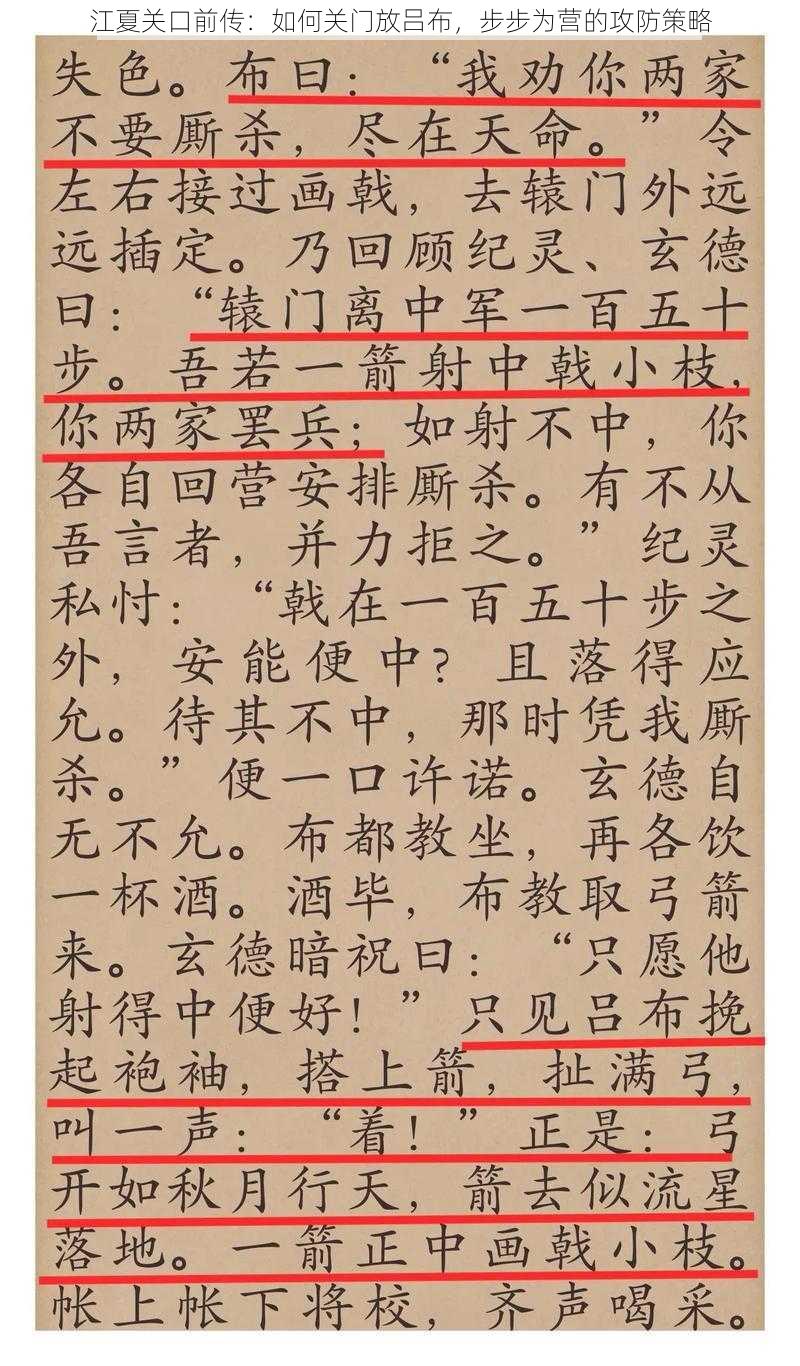 江夏关口前传：如何关门放吕布，步步为营的攻防策略
失色。布曰：“我劝你两家
不要厮杀，尽在天命。”令
左右接过画戟，去辕门外远
远插定。乃回顾纪灵、玄德
曰：“辕门离中军一百五十
步。吾若一箭射中戟小枝，
你两家罢兵；如射不中，你
各自回营安排厮杀。有不从
吾言者，并力拒之。”纪灵
私忖：“戟在一百五十步之
外，安能便中？且落得应
允。待其不中，那时凭我厮
杀。”便一口许诺。玄德自
无不允。布都教坐，再各饮
一杯酒。酒毕，布教取弓箭
来。玄德暗祝曰：“只愿他
射得中便好！”只见吕布挽
起袍袖，搭上箭，扯满弓，
叫一声：“着！”正是：弓
开如秋月行天，箭去似流星
落地。一箭正中画戟小枝。
帐上帐下将校，齐声喝采。